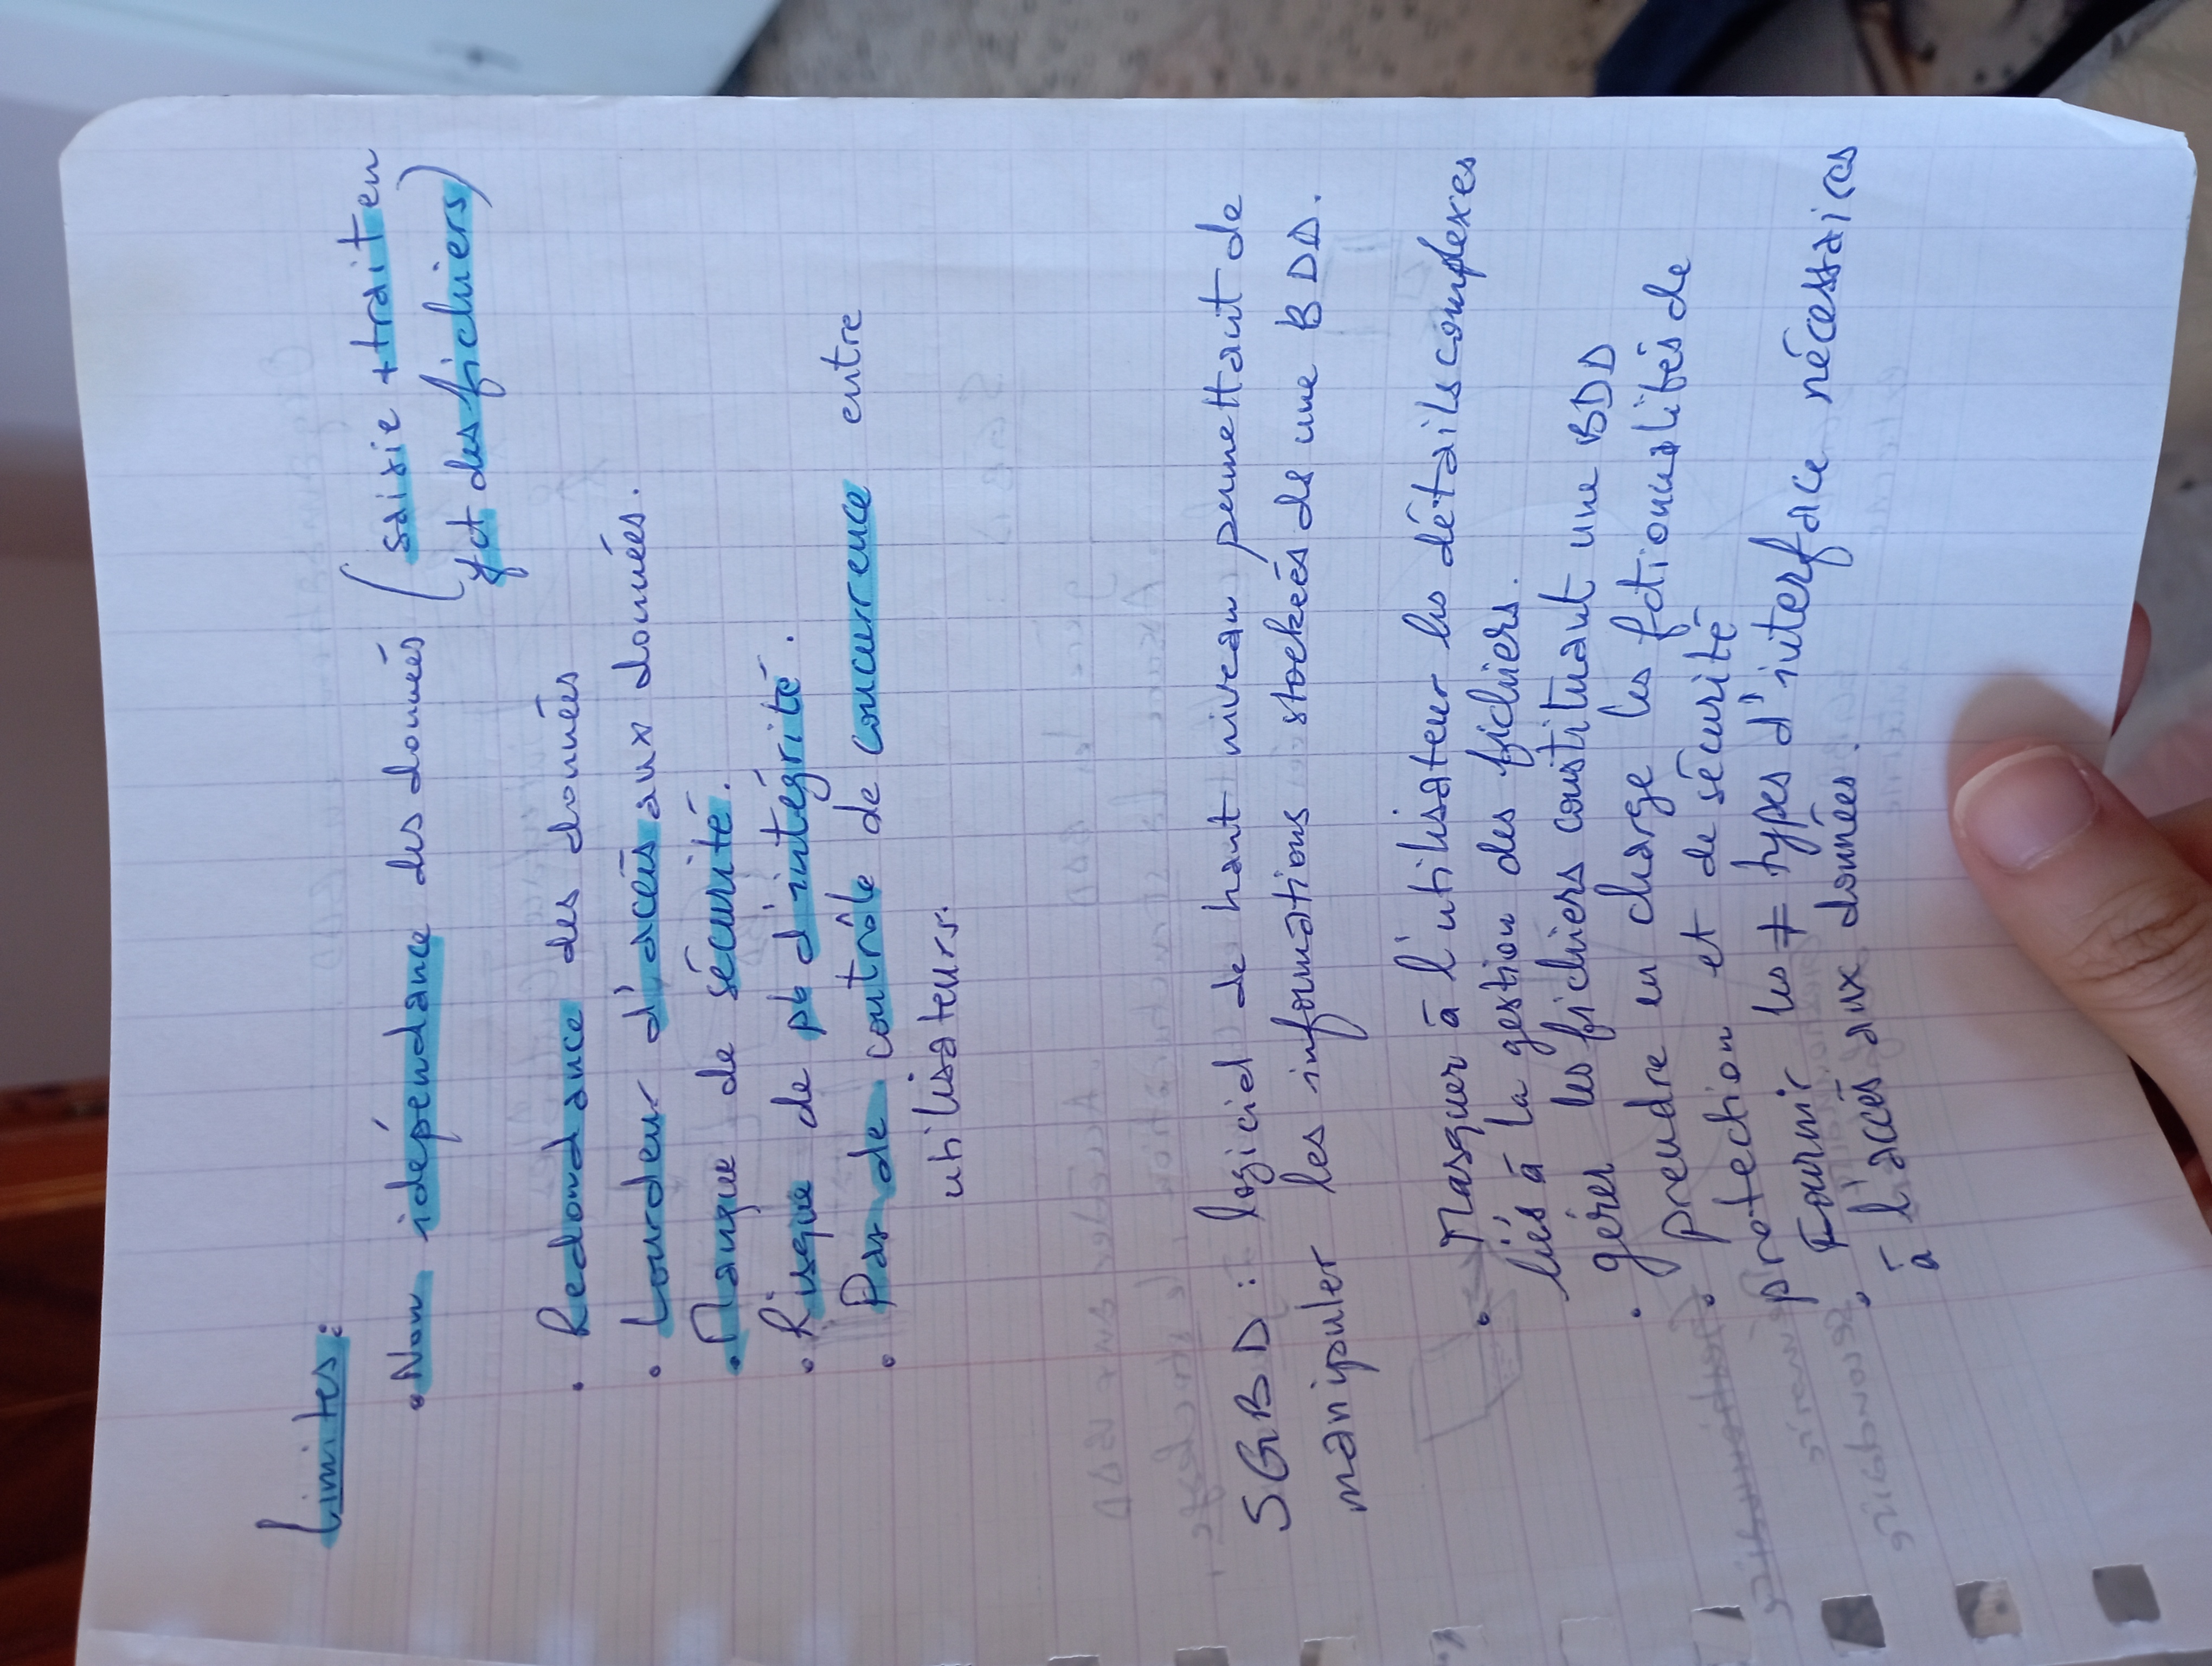 Limites:
• Non idépendance des données (saisie + trait en
fct des fichiers)
• Redondance des données
• Lourdeur d'accès aux données.
• Manque de sécurité.
• Risque de pb d'intégrité.
• Pas de contrôle de concurrence entre
utilisateurs.
SGBD : logiciel de haut niveau permettant de
manipuler les informations stockées ds une BDD.
• Masquer à l'utilisateur les détails complexes
liés à la gestion des fichiers.
• gérer les fichiers constituant une BDD
• prendre en charge les fctionnalités de
protection et de sécurité
• Fournir les ≠ types d'interface nécessaires
à l'accès aux données.